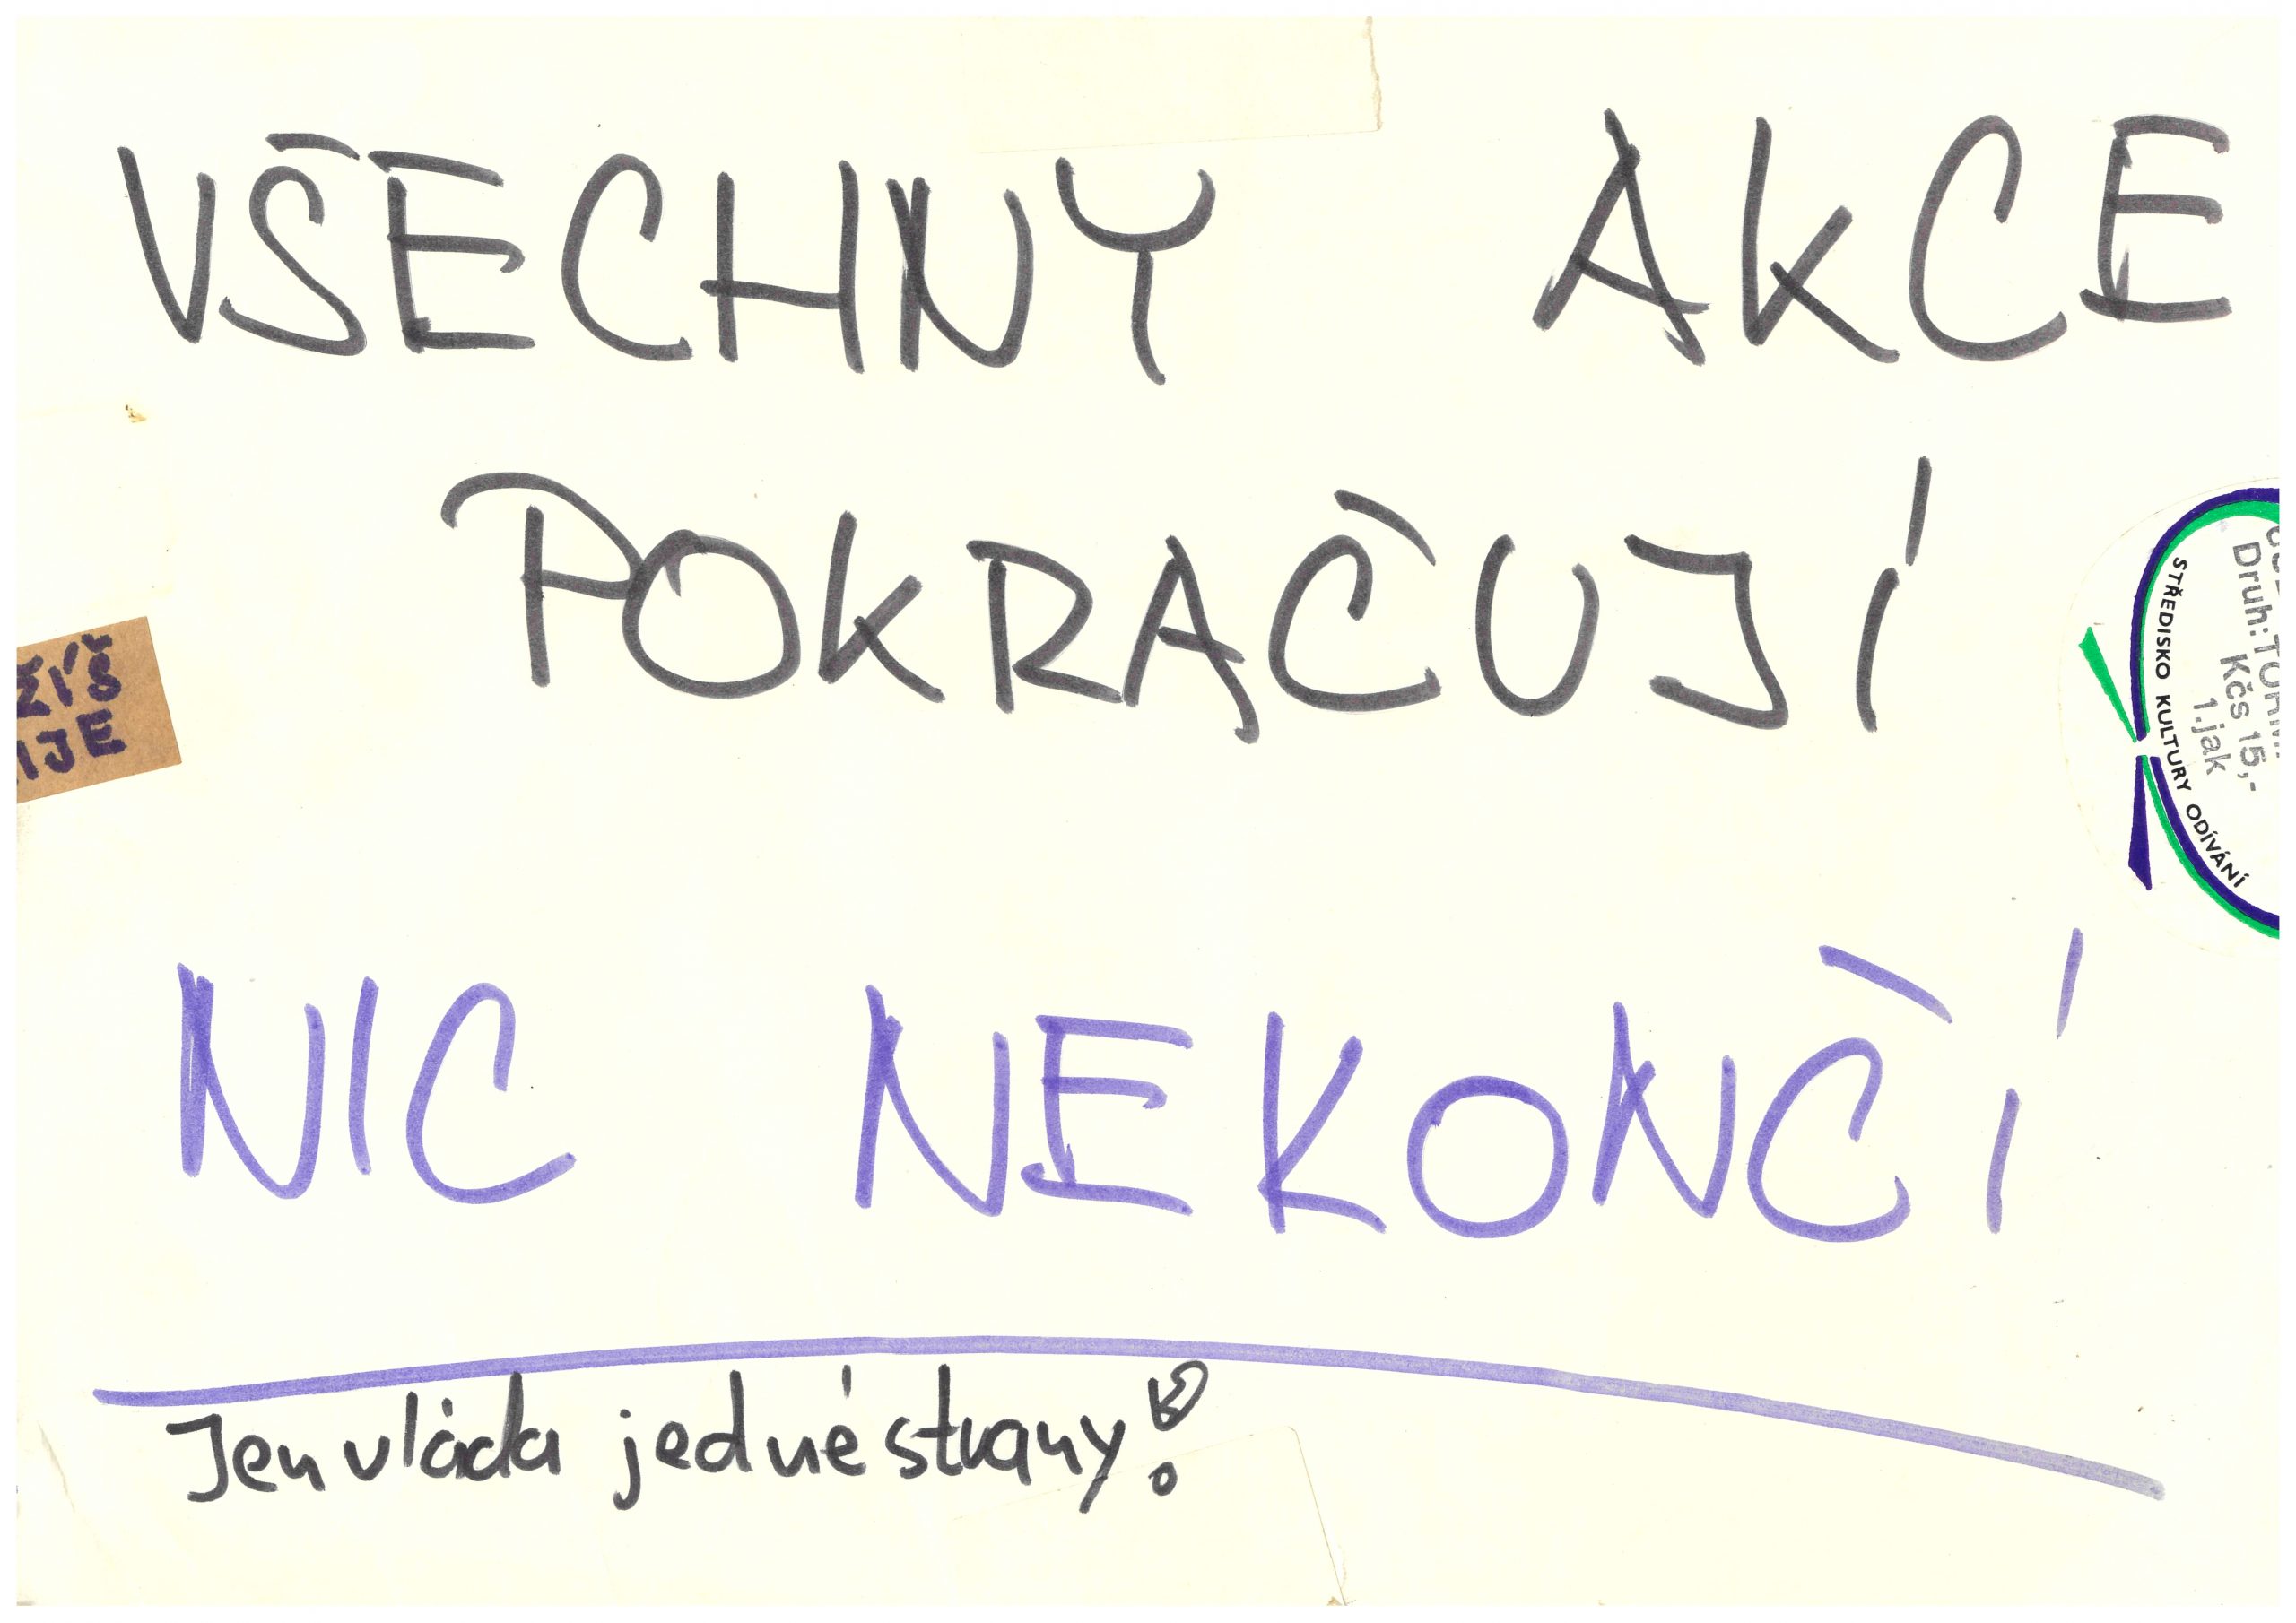 VŠECHNY AKCE
POKRAČUJÍ
ŽÍŠ
IJE
STŘEDISKO KULTURY ODÍVÁNÍ
Druh:
Kčs 15,-
1.jak
NIC NEKONČÍ
Jen vláda jedné strany!